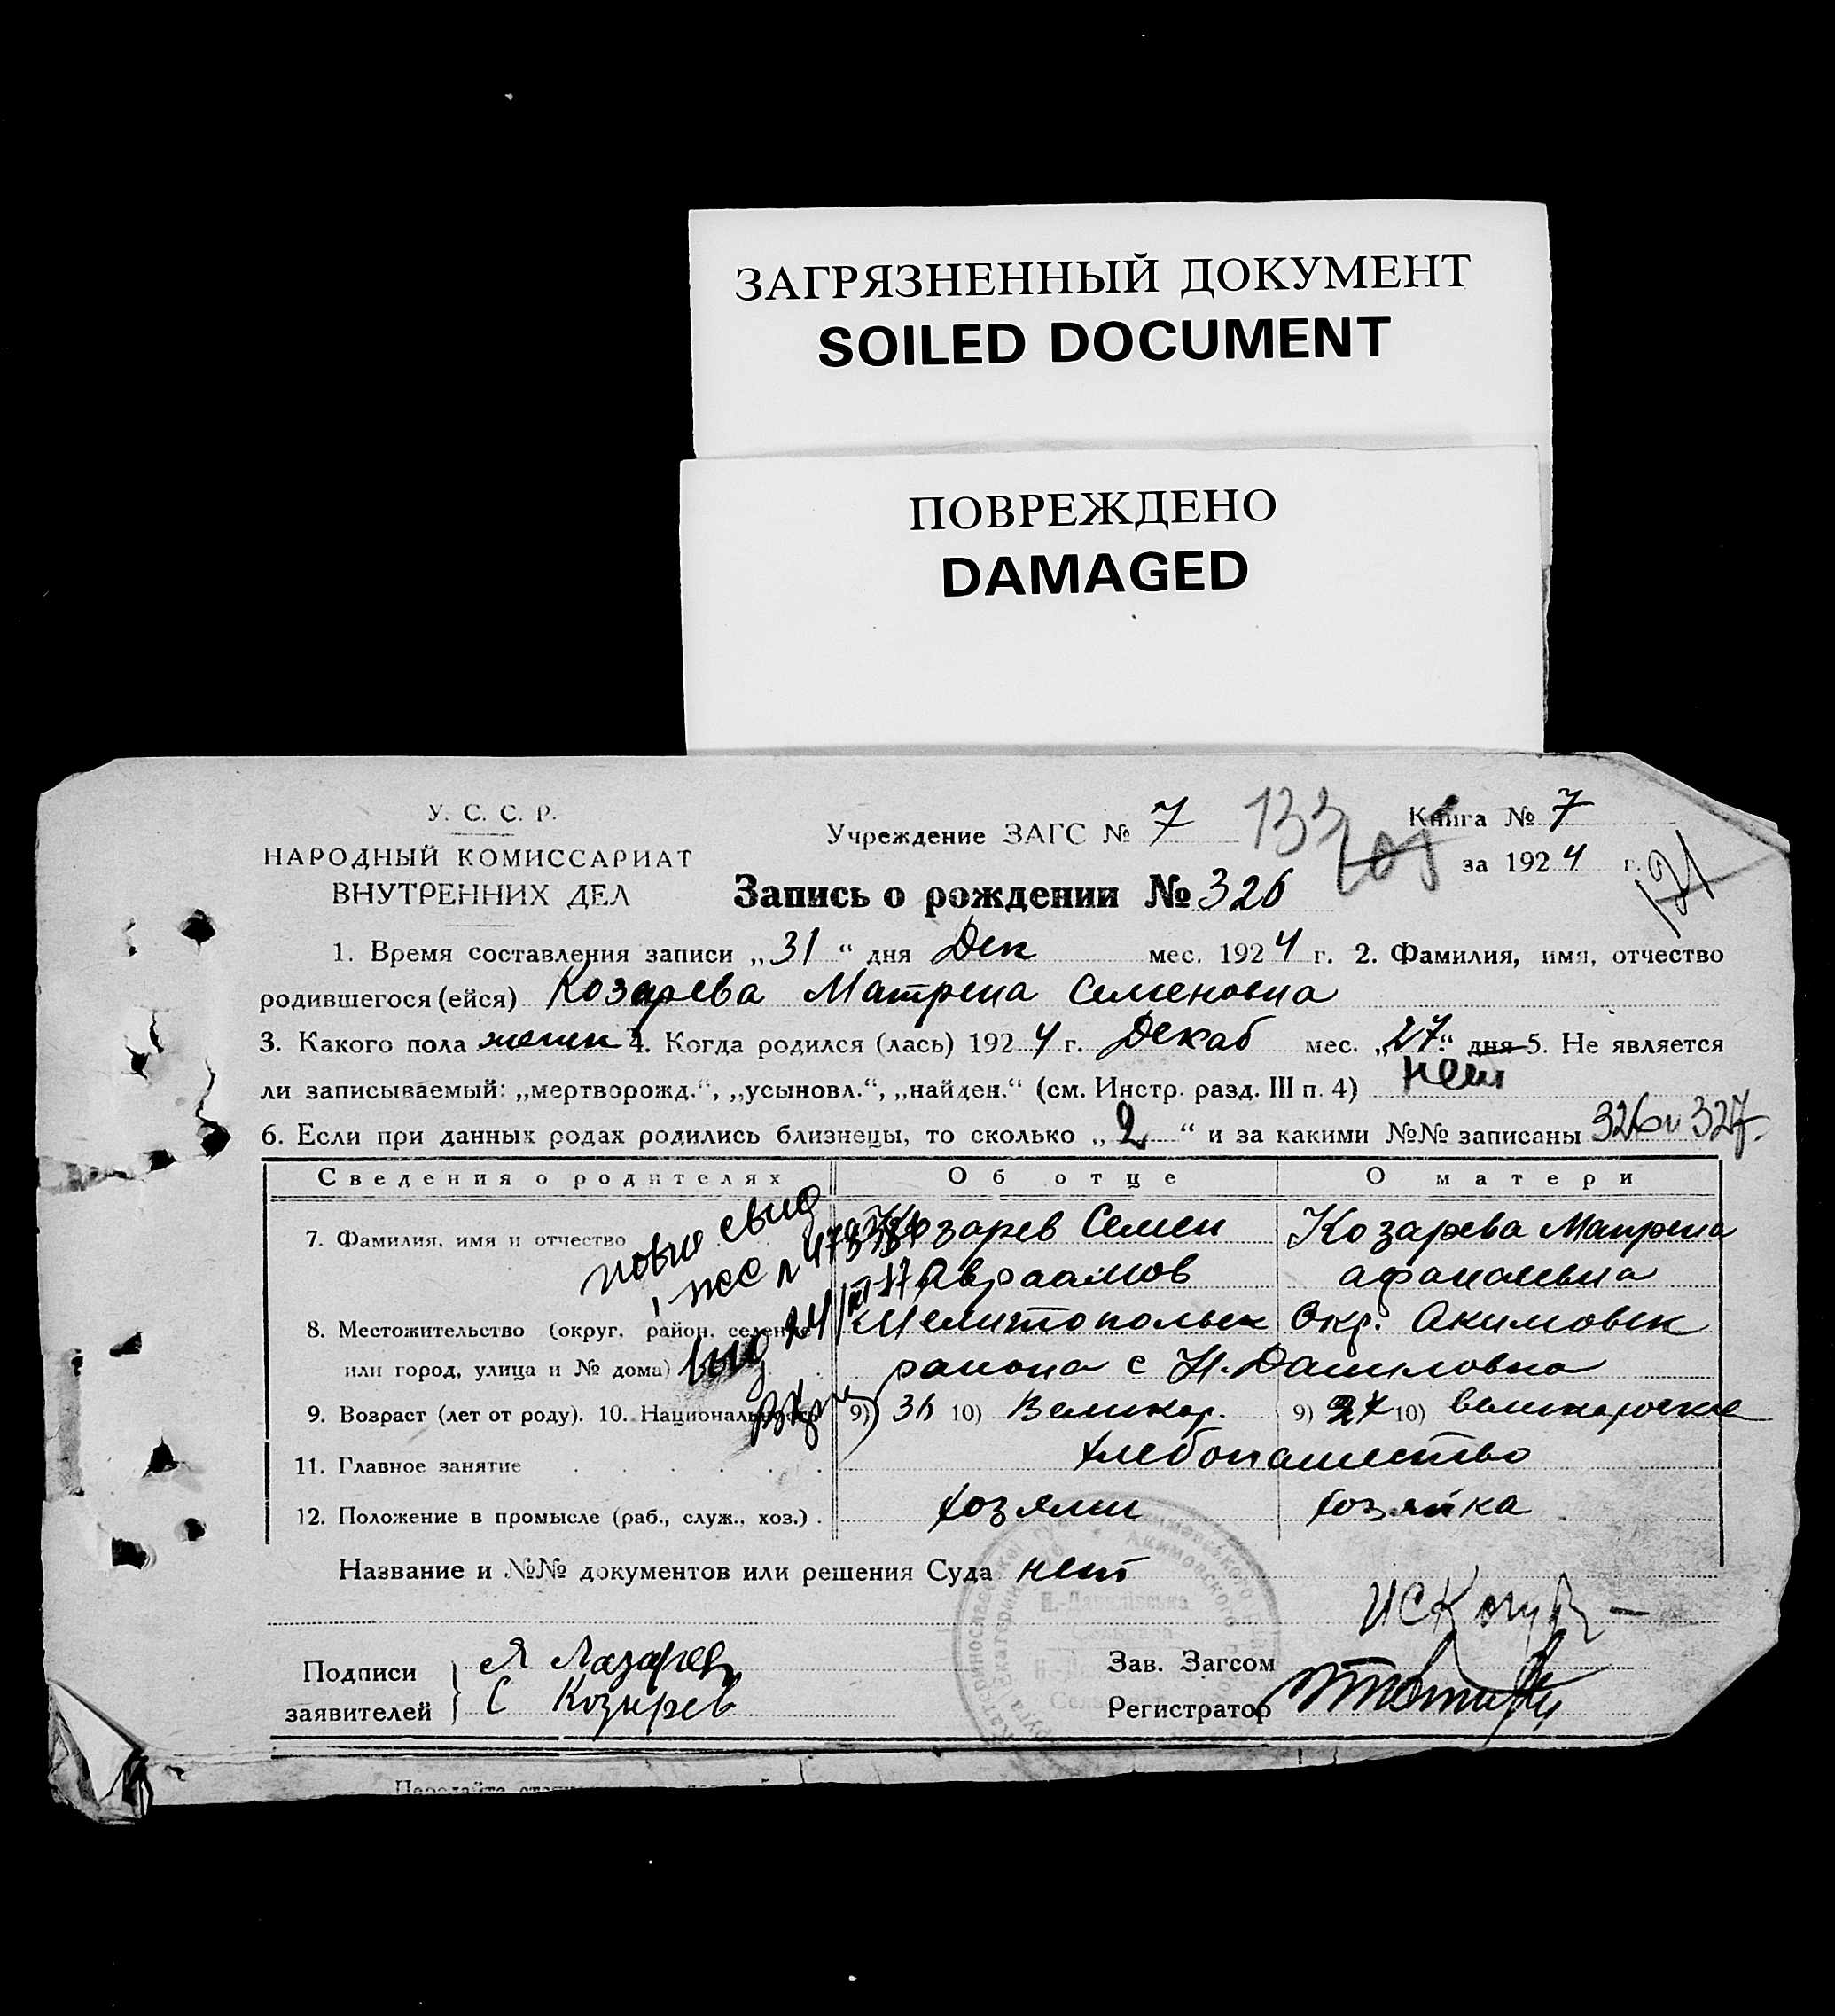 ЗАГРЯЗНЕННЫЙ ДОКУМЕНТ
SOILED DOCUMENT
ПОВРЕЖДЕНО
DAMAGED
У. С. С. Р.
НАРОДНЫЙ КОМИССАРИАТ
ВНУТРЕННИХ ДЕЛ
Учреждение ЗАГС № 7
133
205
Книга № 7
за 1924 г.
121
Запись о рождении № 326
1. Время составления записи „31“ дня Дек мес. 1924 г. 2. Фамилия, имя, отчество
родившегося (ейся) Козарева Матрена Семеновна
3. Какого пола женск 4. Когда родился (лась) 1924 г. Декаб мес. „27“ дня 5. Не является
ли записываемый: „мертворожд.“, „усыновл.“, „найден.“ (см. Инстр. разд. III п. 4) нет
6. Если при данных родах родились близнецы, то сколько „2“ и за какими №№ записаны 326 и 327.
Сведения о родителях Об отце О матери
7. Фамилия, имя и отчество Козарев Семен Козарева Матрена
Авраамов Афанасьевна
8. Местожительство (округ, район, селение Мелитопольск Окр. Акимовск
или город, улица и № дома) района с Н. Даниловка
9. Возраст (лет от роду). 10. Национальность 9) 36 10) Великор. 9) 34 10) великоросска
11. Главное занятие хлебопашество
12. Положение в промысле (раб., служ., хоз.) хозяин хозяйка
Название и №№ документов или решения Суда нет
Подписи заявителей
С Козырев
Зав. Загсом
Регистратор